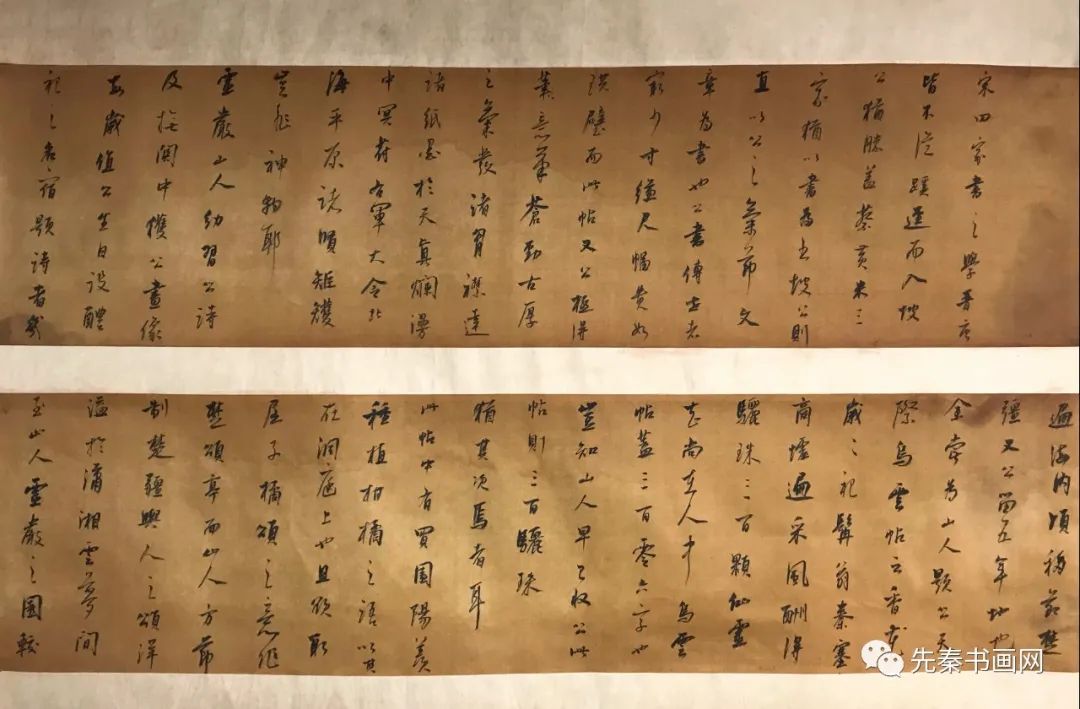 宋四家書之學晉唐
皆不從蹊逕而入坡
公猶勝蓋蔡黃米三
家猶以書為書坡公則
直以公之氣節文
章為書也公書傳世者
家少寸縑尺幅貴如
珙璧而此帖又公極得
意氣蒼勁古厚
之氣發諸胷襟達
諸紙墨於天真爛漫
中冥符右軍大令北
海平原諸順矩矱
豈非神物耶
靈巖山人幼習公詩
及撫關中獲公畫像
每歲值公生日設醴
祀之名宿題詩者幾
遍海內頃移節楚
疆又公留五年地也
金嘗為山人題公天
際烏雲帖云香
歲歲祀髯翁秦塞
商爐遍采風酬得
驪珠三百顆仙靈
尚在人中烏雲
帖蓋三百零六字也
豈知山人早已收公此
帖則三百驪珠
猶其次焉者耳
此帖中有買園陽羨
種植柑橘之語以其
在洞庭上也且欲取
屈子橘頌之意作
楚頌亭而山人方節
制楚疆輿人之頌洋
溢於瀟湘雲夢間
至山人靈巖之園較
先秦书画网